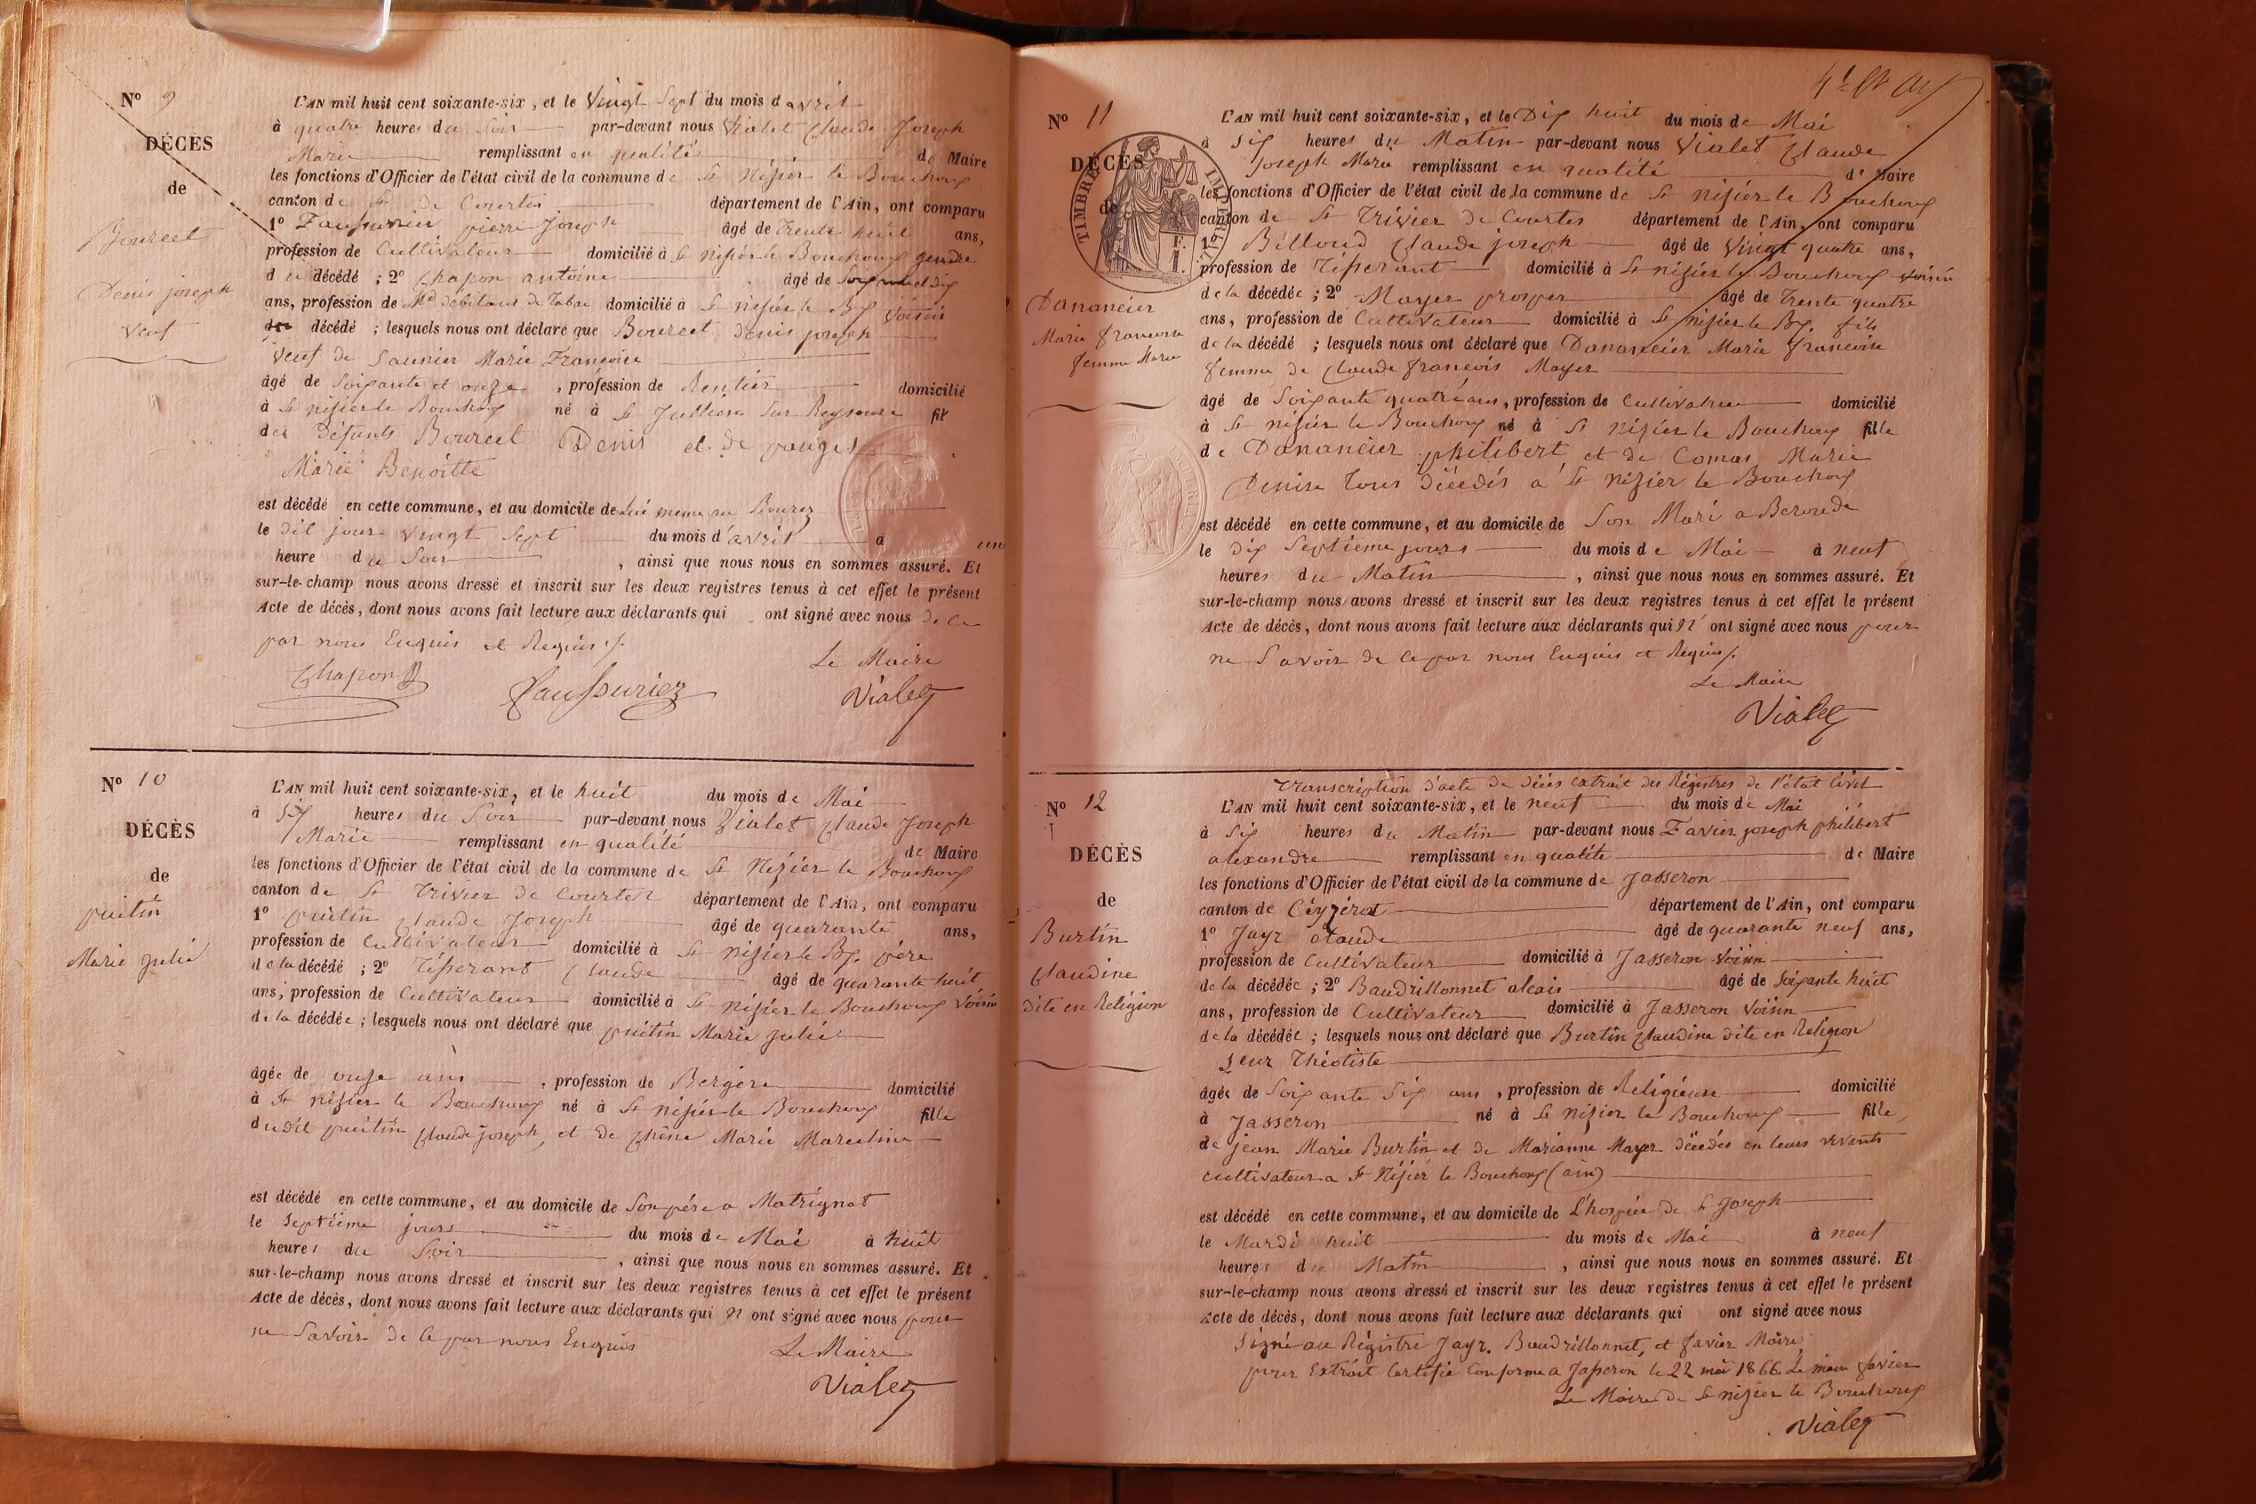 N° 9
DÉCÈS
de
Bourcet
Denis joseph
Veuf
L'AN mil huit cent soixante-six, et le Vingt Sept du mois d avril
à quatre heures du Soir par-devant nous Vialet Claude Joseph
Marie remplissant en qualités de Maire
les fonctions d'Officier de l'état civil de la commune de St Nizier le Bouchoux
canton de St de Courtes département de l'Ain, ont comparu
1° Faussurier pierre Joseph âgé de Trente huit ans,
profession de Cultivateur domicilié à St nizier le Bouchoux gendre
du décédé ; 2° Chapon antoine âgé de
ans, profession de Md débitant de Tabac domicilié à St nizier le Bx voisin
décédé ; lesquels nous ont déclaré que Bourcet, Denis joseph
Veuf de Saunier Marie Françoise
âgé de Soixante et onze , profession de Rentier domicilié
à St nizier le Bouchoux né à St Jullien Sur Reyssouze fils
des Défunts Bourcet Denis et de
Marie Benoitte
est décédé en cette commune, et au domicile de Lui meme au
le dit jour Vingt Sept du mois d'avril à une
heure du Soir , ainsi que nous nous en sommes assuré. Et
sur-le-champ nous avons dressé et inscrit sur les deux registres tenus à cet effet le présent
Acte de décès, dont nous avons fait lecture aux déclarants qui ont signé avec nous de ce
par nous Enquis et Requis ./.
Le Maire
Chapon
Faussurier
Vialet
N° 10
DÉCÈS
de
puitin
Marie julie
L'AN mil huit cent soixante-six, et le huit du mois de Mai
à Six heures du Soir par-devant nous Vialet Claude Joseph
Marie remplissant en qualité de Maire
les fonctions d'Officier de l'état civil de la commune de St Nizier le Bouchoux
canton de St Trivier de Courtes département de l'Ain, ont comparu
1° puitin Claude Joseph âgé de quarante ans,
profession de Cultivateur domicilié à St Nizier le Bx. père
de la décédé ; 2° Tisserant Claude âgé de quarante huit
ans, profession de Cultivateur domicilié à St Nizier le Bouchoux Voisin
de la décédée ; lesquels nous ont déclaré que puitin Marie julie
âgée de onze ans , profession de Bergère domicilié
à St nizier le Bouchoux né à St nizier le Bouchoux fille
du dit puitin Claude joseph, et de Chêne Marie Marceline
est décédé en cette commune, et au domicile de Son père a Matrignat
le Septième jours du mois de Mai à huit
heures du Soir , ainsi que nous nous en sommes assuré. Et
sur-le-champ nous avons dressé et inscrit sur les deux registres tenus à cet effet le présent
Acte de décès, dont nous avons fait lecture aux déclarants qui n' ont signé avec nous pour
ne Savoir de ce par nous Enquis
Le Maire
Vialet
N° 11
DÉCÈS
de
TIMBRE IMPÉRIAL
Dananciér
Marie françoise
femme Mayer
L'AN mil huit cent soixante-six, et le Dix huit du mois de Mai
à Six heures du Matin par-devant nous Vialet Claude
Joseph Marie remplissant en qualité de Maire
les fonctions d'Officier de l'état civil de la commune de St Nizier le Bouchoux
canton de St Trivier de Courtes département de l'Ain, ont comparu
1° Billoud Claude joseph âgé de Vingt quatre ans,
profession de Tisserant domicilié à St nizier le Bouchoux voisin
de la décédée ; 2° Mayer prosper âgé de Trente quatre
ans, profession de Cultivateur domicilié à St nizier le Bx. fils
de la décédé ; lesquels nous ont déclaré que Dananciér Marie françoise
femme de Claude françois Mayer
âgé de Soixante quatre ans, profession de Cultivatrice domicilié
à St nizier le Bouchoux né à St Nizier le Bouchoux fille
de Dananciér philibert et de Comas Marie
Denise Tous Décédés à St nizier le Bouchoux
est décédé en cette commune, et au domicile de Son Mari a Beroude
le dix Septieme jours du mois de Mai à neuf
heures du Matin , ainsi que nous nous en sommes assuré. Et
sur-le-champ nous avons dressé et inscrit sur les deux registres tenus à cet effet le présent
Acte de décès, dont nous avons fait lecture aux déclarants qui n' ont signé avec nous pour
ne Savoir de ce par nous Enquis et Requis ./.
Le Maire
Vialet
N° 12
DÉCÈS
de
Burtin
Claudine
dite en Religion
Transcription d'acte de décès extrait des Régistres de l'état Civil
L'AN mil huit cent soixante-six, et le neuf du mois de Mai
à Six heures du Matin par-devant nous Favier joseph philibert
alexandre remplissant en qualité de Maire
les fonctions d'Officier de l'état civil de la commune de Jasseron
canton de Céyzériat département de l'Ain, ont comparu
1° Jayr Claude âgé de quarante neuf ans,
profession de Cultivateur domicilié à Jasseron voisin
de la décédée ; 2° Baudrillonnet alexis âgé de Soixante huit
ans, profession de Cultivateur domicilié à Jasseron Voisin
de la décédée ; lesquels nous ont déclaré que Burtin Claudine dite en Religion
Seur Théotiste
âgée de Soixante Six ans , profession de Religieuse domicilié
à Jasseron né à St Nizier le Bouchoux fille,
de jean Marie Burtin et de Marianne Mayer décédés en leurs vivants
cultivateur a St Nizier le Bouchoux (ain)
est décédé en cette commune, et au domicile de L'hospice de St Joseph
le Mardi huit du mois de Mai à neuf
heures du Matin , ainsi que nous nous en sommes assuré. Et
sur-le-champ nous avons dressé et inscrit sur les deux registres tenus à cet effet le présent
Acte de décès, dont nous avons fait lecture aux déclarants qui ont signé avec nous
Signé au Régistre Jayr. Baudrillonnet, et favier Maire
pour Extrait Certifié Conforme a Jasseron le 22 mai 1866 Le maire favier
Le Maire de St nizier le Bouchoux
Vialet